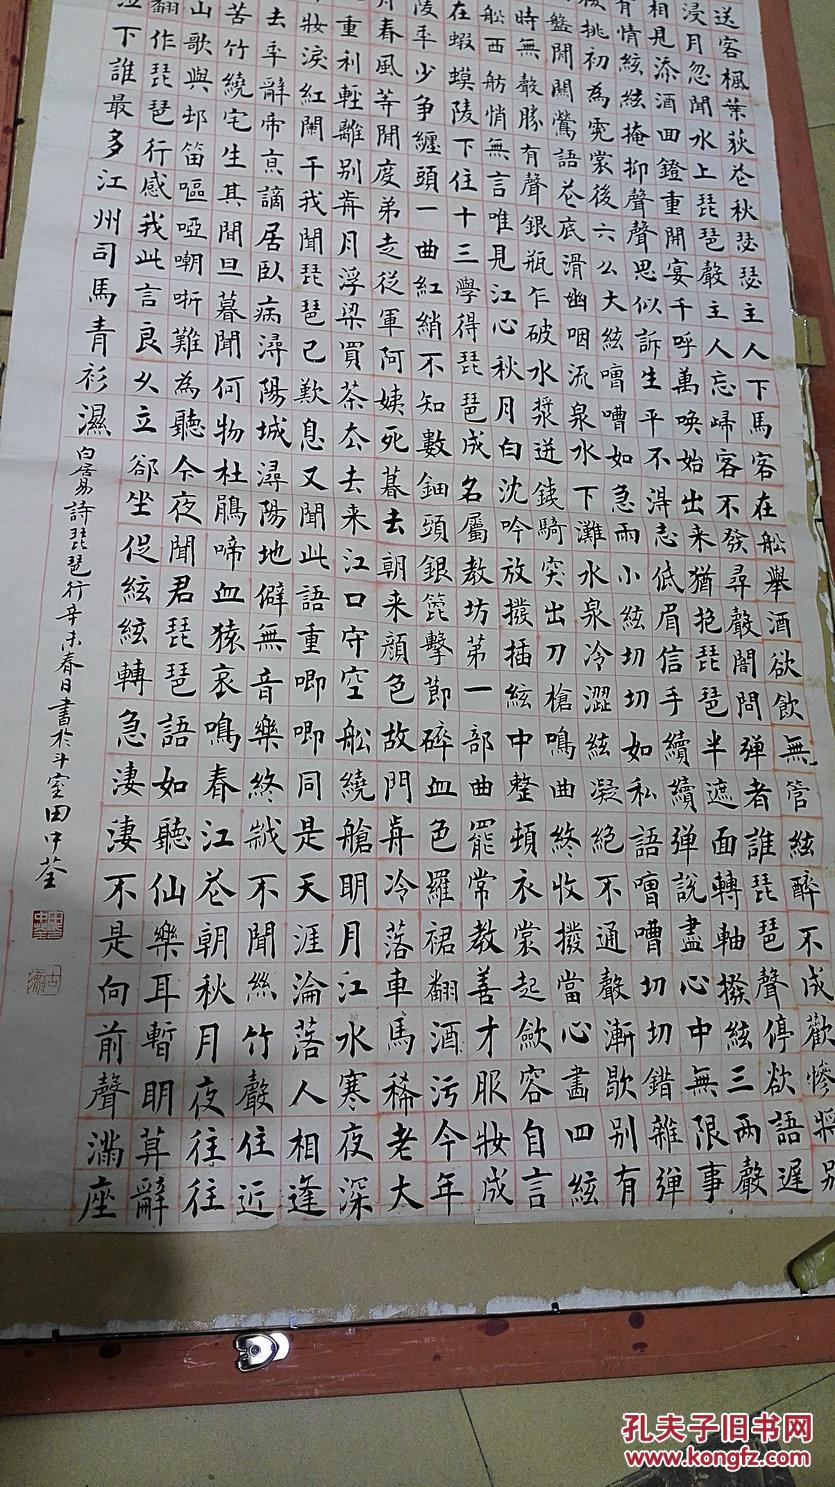 送客楓葉荻花秋瑟瑟主人下馬客在船舉酒欲飲無管絃醉不成歡慘將别
浸月忽聞水上琵琶聲主人忘歸客不發尋聲闇問弹者誰琵琶聲停欲語遲
相見添酒回燈重開宴千呼萬喚始出来猶抱琵琶半遮面轉軸撥絃三兩聲
有情絃絃掩抑聲聲思似訴生平不得志低眉信手續續弹說盡心中無限事
挑初為霓裳後六幺大絃嘈嘈如急雨小絃切切如私語嘈嘈切切錯雜弹
盤間關鶯語花底滑幽咽流泉水下灘水泉冷澀絃凝絶不通聲漸歇别有
時無聲勝有聲銀瓶乍破水漿迸鐵騎突出刀槍鳴曲終收撥當心畫四絃
船西舫悄無言唯見江心秋月白沈吟放撥插絃中整頓衣裳起斂容自言
在蝦蟆陵下住十三學得琵琶成名屬教坊第一部曲罷常教善才服妝成
陵年少爭纏頭一曲紅綃不知數鈿頭銀篦擊節碎血色羅裙翻酒污今年
月春風等閒度弟走從軍阿姨死暮去朝来顔色故門前冷落車馬稀老大
重利輕離别前月浮梁買茶去去来江口守空船繞艙明月江水寒夜深
妝淚紅闌干我聞琵琶已歎息又聞此語重唧唧同是天涯淪落人相逢
去年辭帝京謫居臥病潯陽城潯陽地僻無音樂終歲不聞絲竹聲住近
苦竹繞宅生其間旦暮聞何物杜鵑啼血猿哀鳴春江花朝秋月夜往往
山歌與邨笛嘔啞嘲哳難為聽今夜聞君琵琶語如聽仙樂耳暫明莫辭
翻作琵琶行感我此言良久立卻坐促絃絃轉急淒淒不是向前聲滿座
泣下誰最多江州司馬青衫濕
白居易詩琵琶行辛未春日書於斗室田中荃
孔夫子旧书网
www.kongfz.com